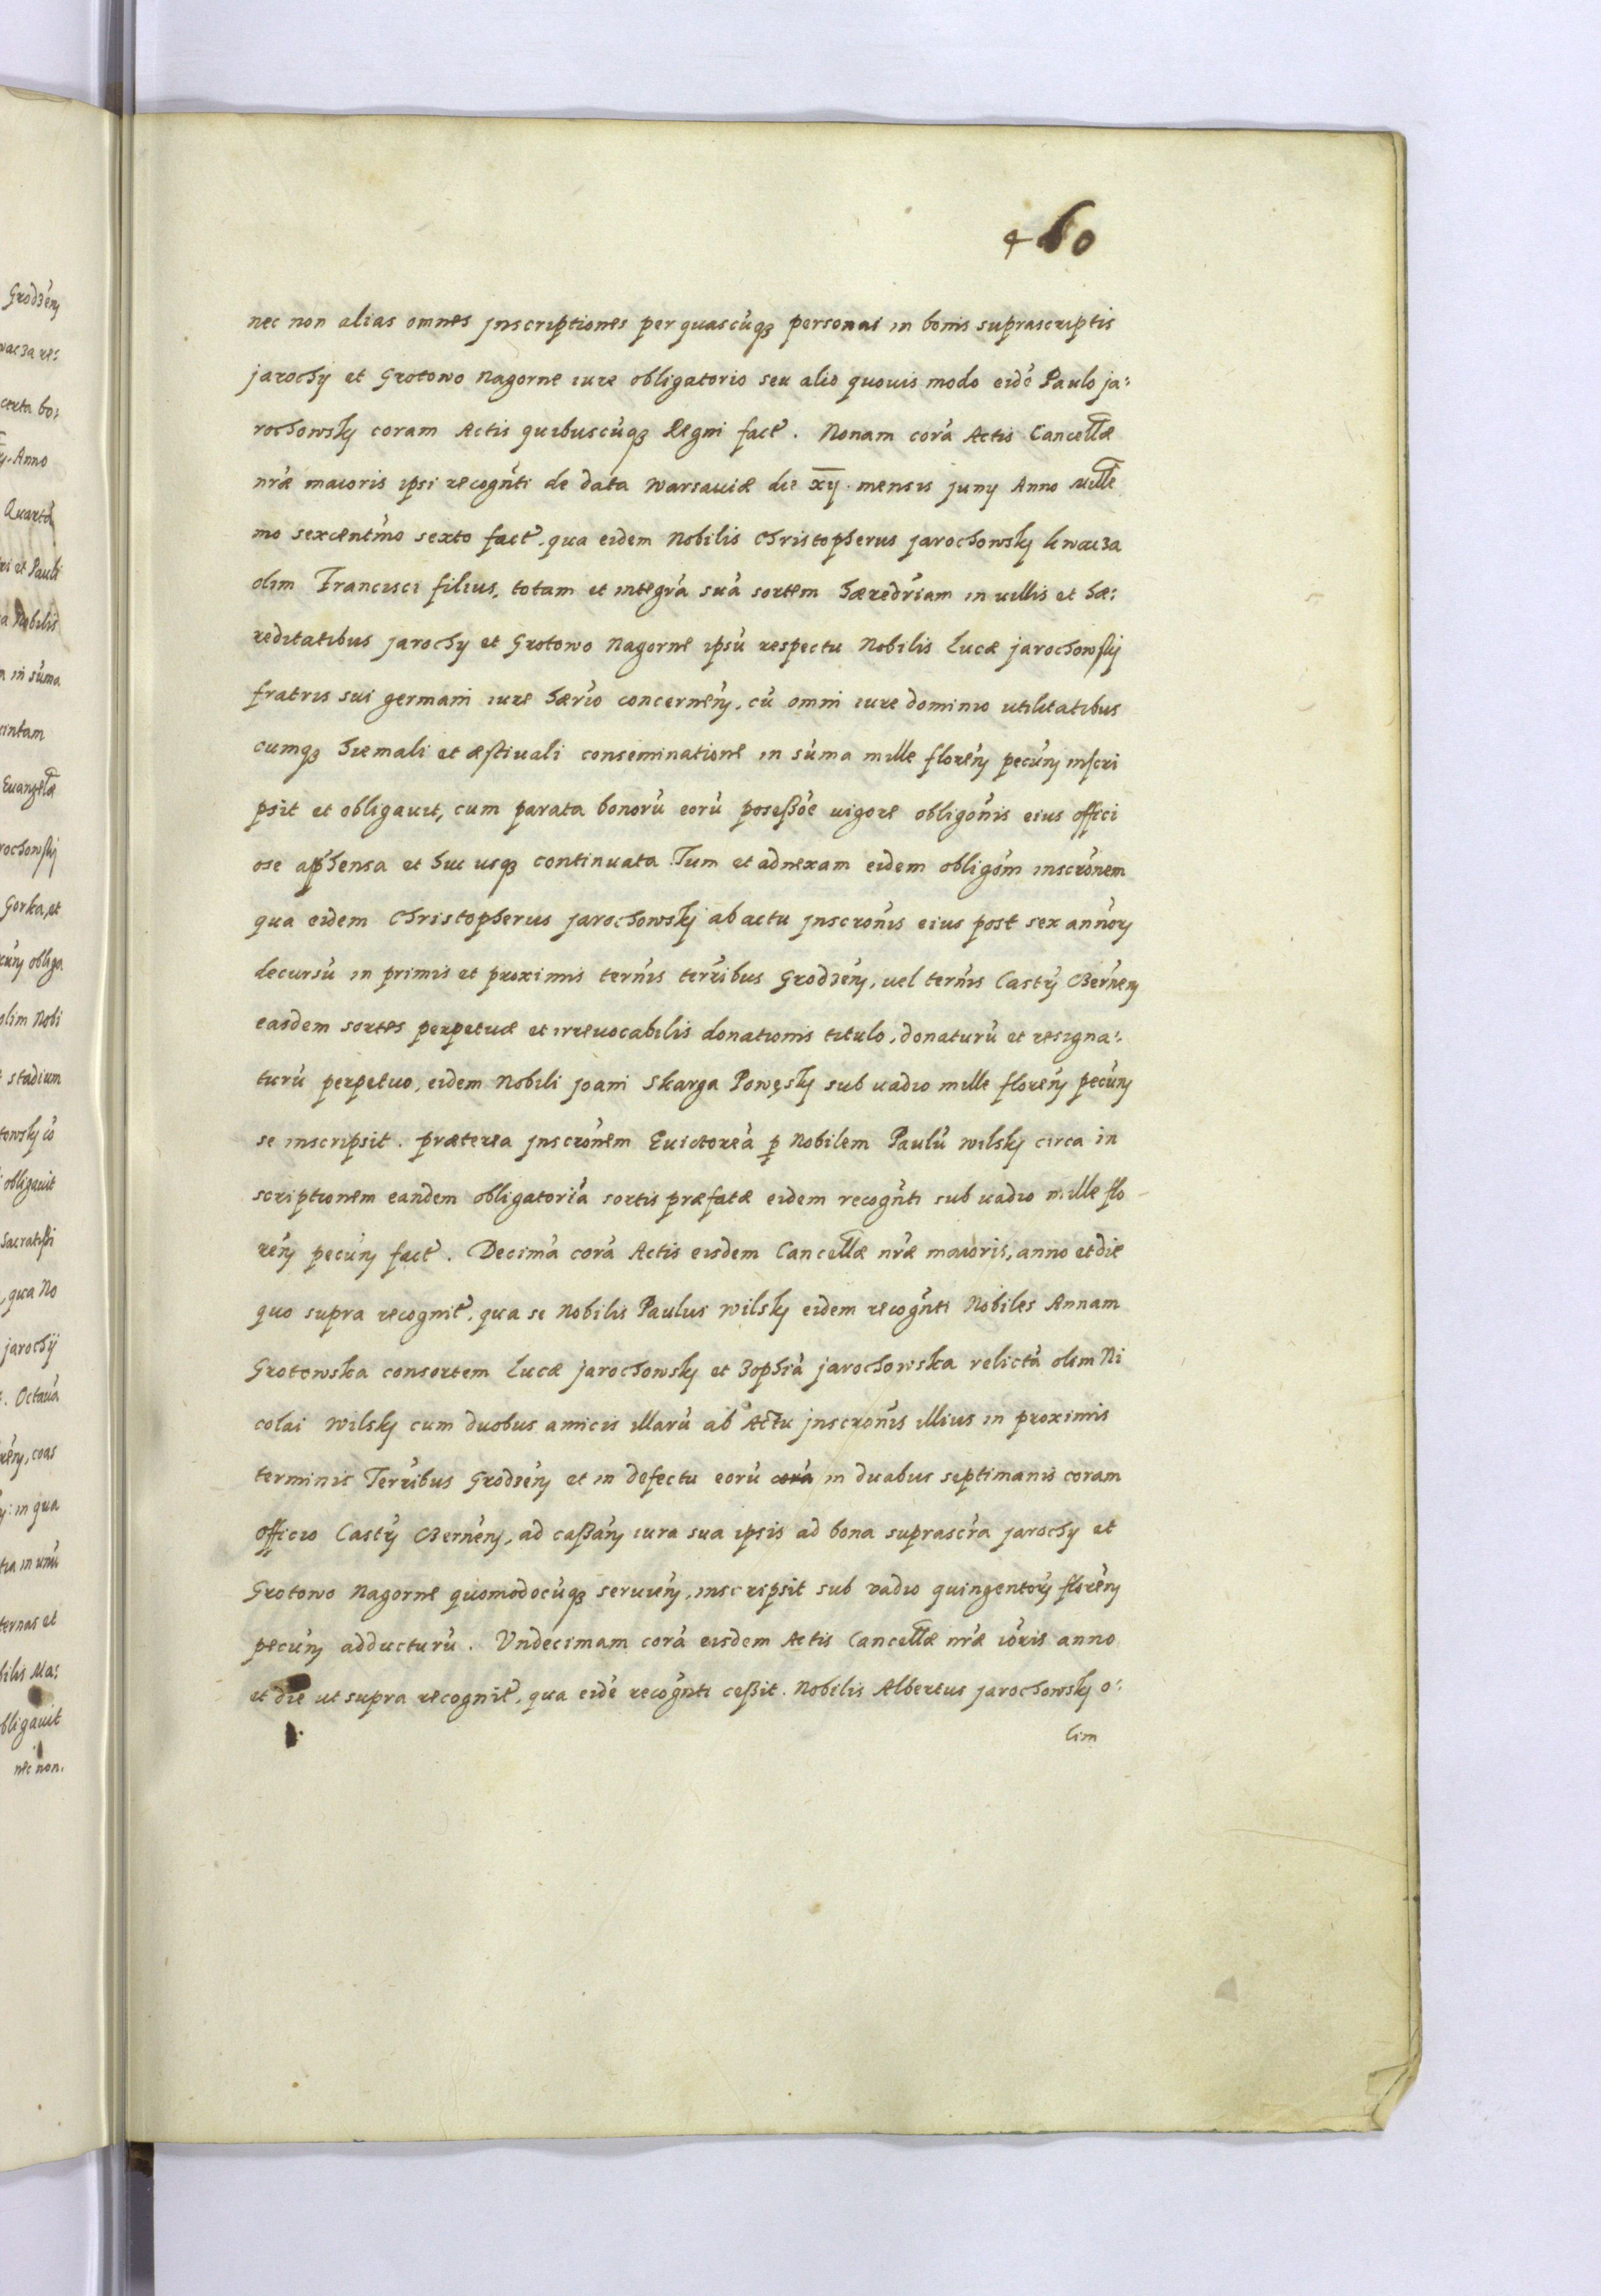 Grodzen̄
certa bo:
Anno
Quartā
Nobilis
in sūma
Euangel̃æ
Gorka, et
olim Nobi
stadium
obligauit
qua No
jarochÿ
Octauā
in qua
ternas et
bilis Ma:
bligauit
nec non.
460
nec non alias omnes jnscriptiones per quascūq₃ personas in bonis suprascriptis
jarochÿ et Grotowo Nagorne iure obligatorio seu alio quouis modo eidē Paulo ja:
rochowskj coram Actis quibuscūq₃ Regni fact̃. Nonam corā Actis Cancell̃æ
nr̄æ maioris ipsi recogn̄ti de data Warsauiæ die xij. mensis junÿ Anno Mille
mo sexcentm̄o sexto fact̃. qua eidem Nobilis Christopherus jarochowskj kwacza
olim Francisci filius, totam et integrā suā sortem hæredr̄iam in uillis et hæ:
reditatibus jarochÿ et Grotowo Nagorne ipsū respectu Nobilis Lucæ jarochowskj
fratris sui germani iure hær̄io concernen̄, cū omni iure dominio utilitatibus
cumq₃ hiemali et æstiuali conseminatione in sūma mille floren̄ pecūn̄ inscri
psit et obligauit, cum parata bonorū eorū poseßōe uigore obligōnis eius offici
ose app̄hensa et huc usq₃ continuata. Tum et adnexam eidem obligōni inscrōnem
qua eidem Christopherus jarochowskj ab actu jnscrōnis eius post sex annor̄
decursū in primis et proximis tern̄is terr̄ibus Grodzen̄, uel tern̄is Castr̄ Bernen̄
easdem sortes perpetuæ et irreuocabilis donationis titulo, donaturū et resigna:
turū perpetuo, eidem Nobili joani Skarga Powęskj sub uadio mille floren̄ pecūn̄
se inscripsit. præterea jnscrōnem Euictoreā p̱ Nobilem Paulū Wilskj circa in
scriptionem eandem obligatoriā sortis præfatæ eidem recogn̄ti sub uadio mille flo
ren̄ pecūn̄ fact̃. Decimā corā Actis eisdem Cancell̃æ nr̄æ maioris, anno et die
quo supra recognit̃. qua se Nobilis Paulus Wilskj eidem recogn̄ti Nobiles Annam
Grotowska consortem Lucæ jarochowskj et Zophiā jarochowska relictā olim Ni
colai Wilskj cum duobus amicis illarū ab Actu jnscrōnis illius in proximis
terminis Terr̄ibus Grodzen̄ et in defectu eorū corā in duabus septimanis coram
officio Castr̄ Bernen̄, ad caßan̄ iura sua ipsis ad bona suprascr̄a jarochÿ et
Grotowo Nagorne quomodocūq₃ seruien̄, inscripsit sub vadio quingentor̄ floren̄
pecūn̄ adducturū. Vndecimam corā eisdem Actis Cancell̃æ nr̄æ iōris anno
et die ut supra recognit̃, qua eidē recogn̄ti ceßit. Nobilis Albertus jarochowskj o:
lim